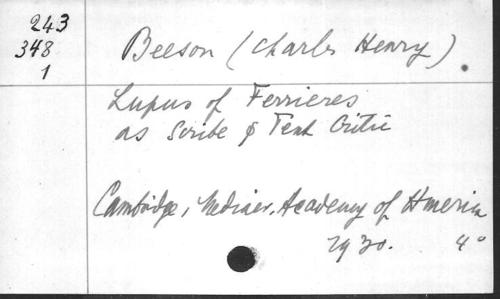 243
348
1
Beeson (Charles Henry).
Lupus of Ferrieres
as Scribe & Text Critic
Cambridge, Mediaev. Academy of America
1930. 4°